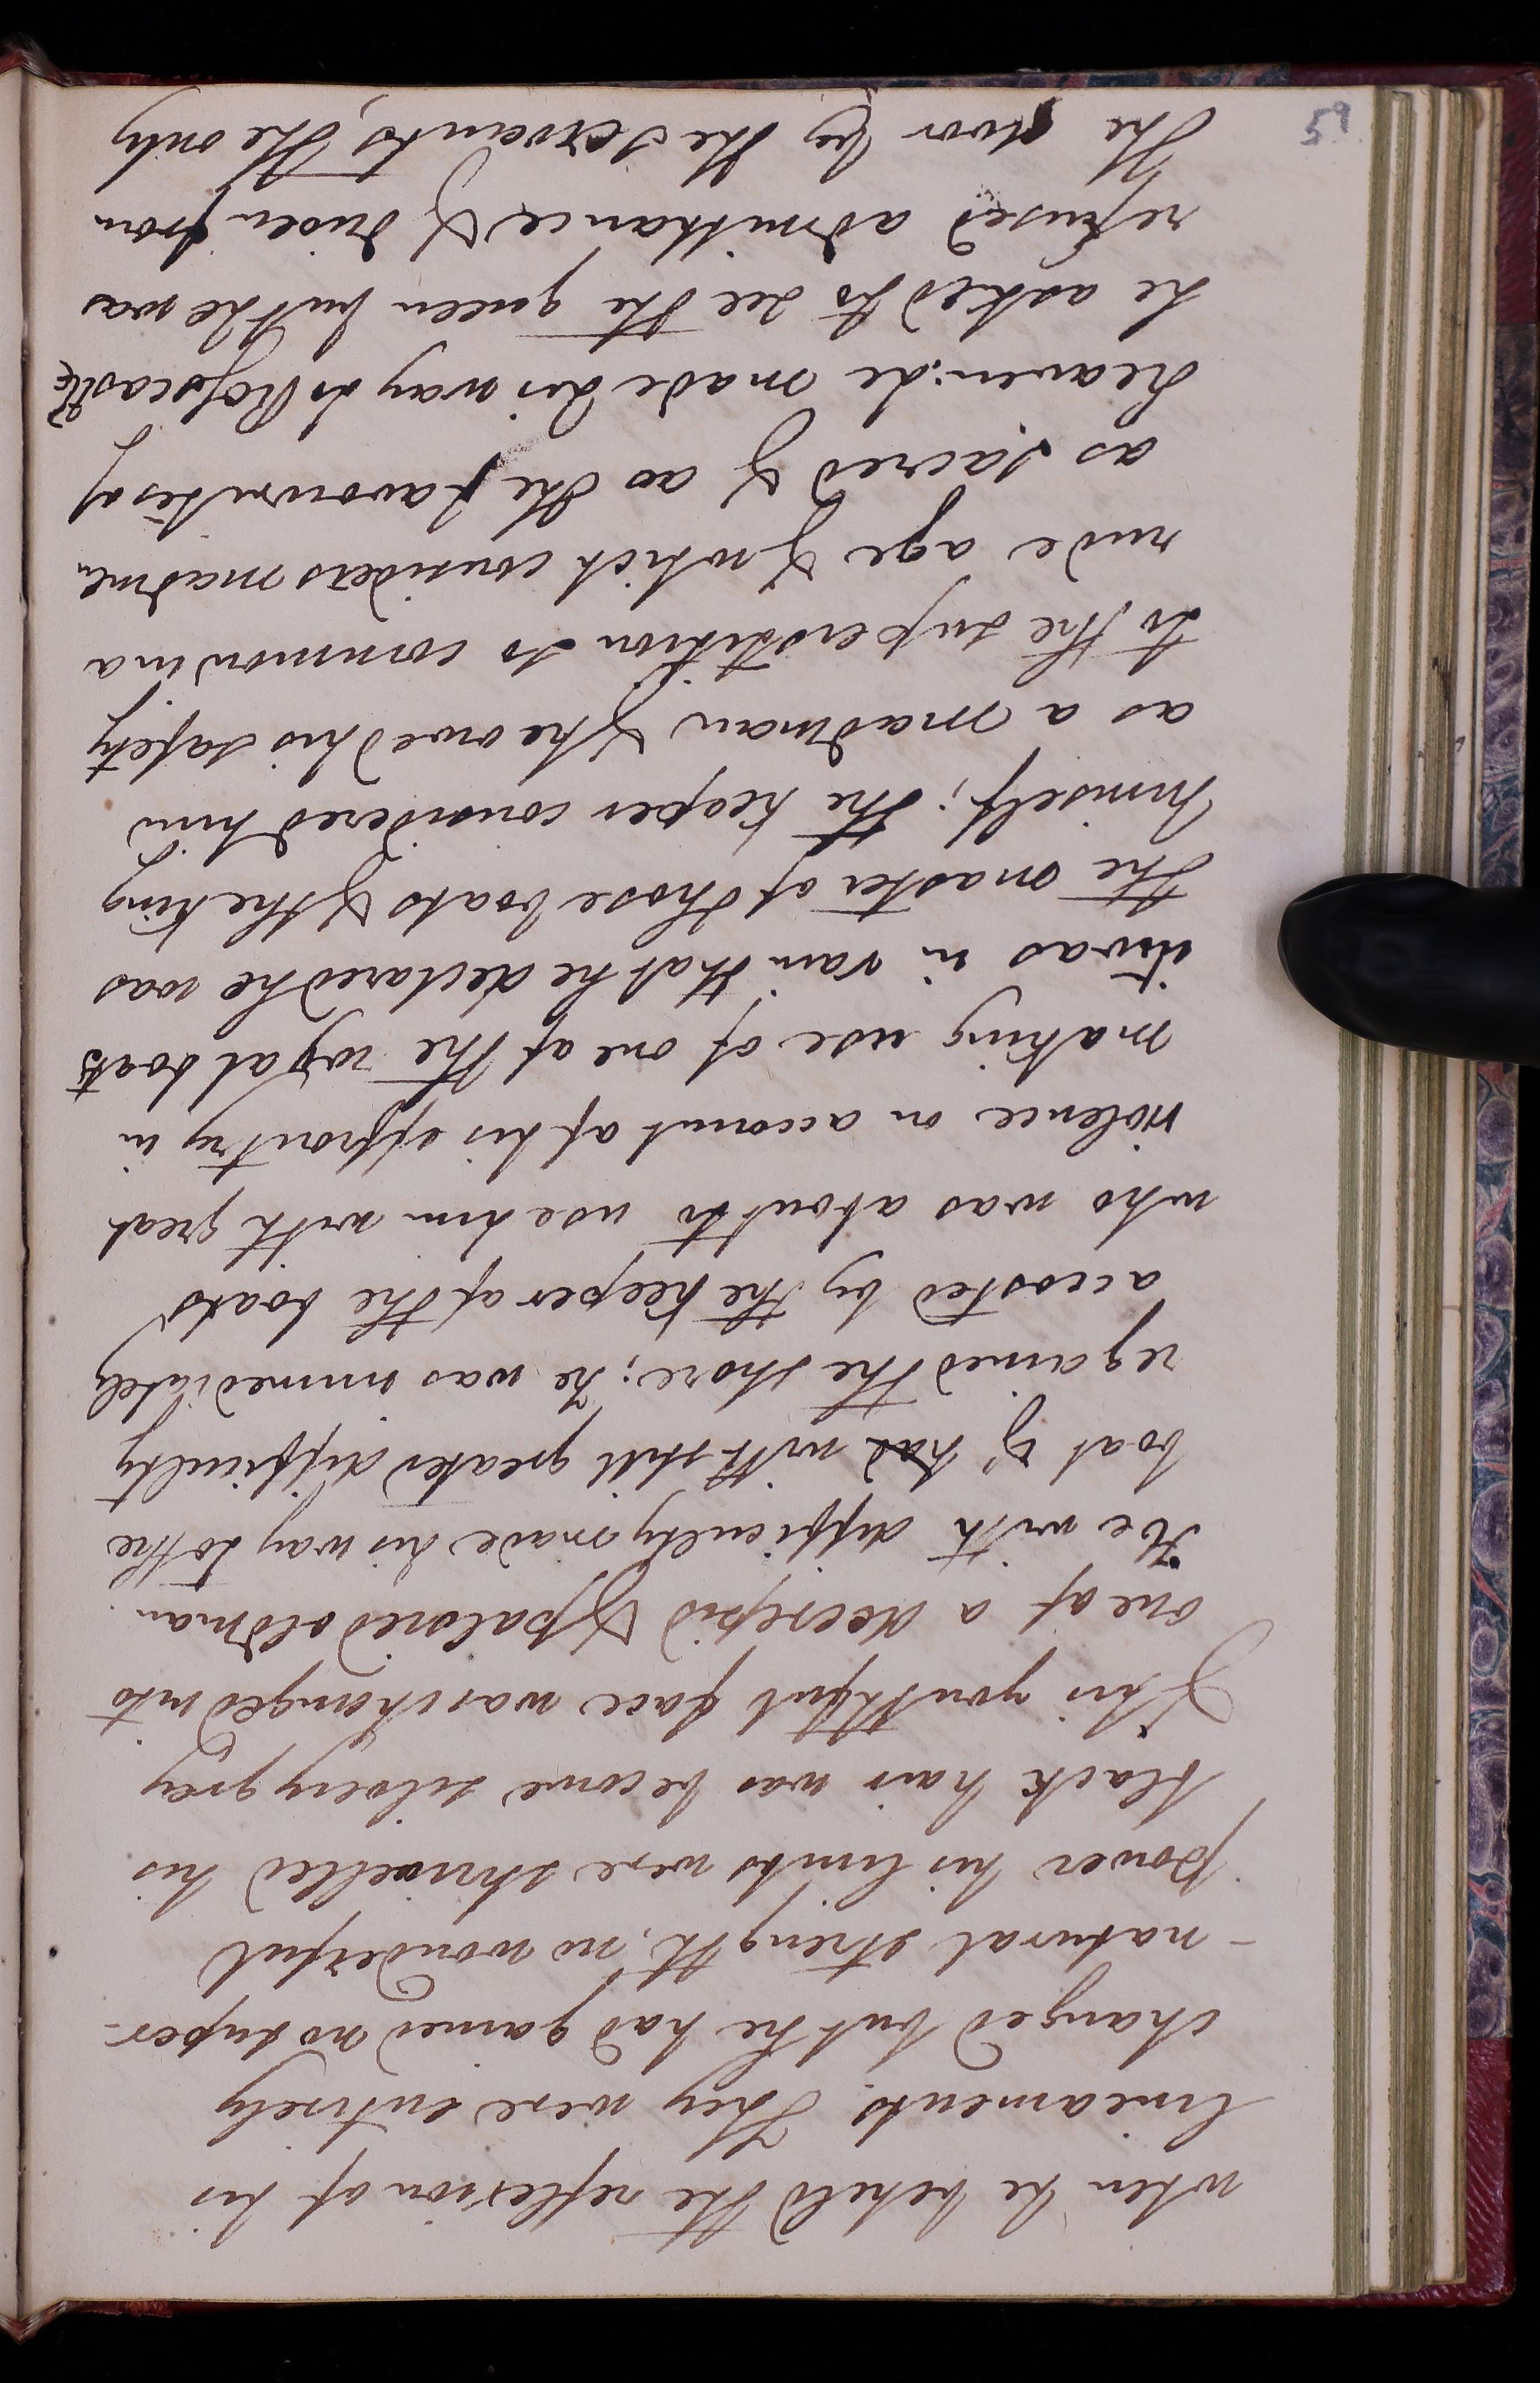 when he beheld the reflexion of his
lineaments. They were entirely
changed but he had gained no super-
-natural strength, no wonderful
power his limbs were shrivelled his
black hair was become silvery grey
& his youthful face was changed into
one of a decrepid & palsied old man.
He with difficulty made his way to the
boat & had with still greater difficulty
regained the shore; he was immediately
accosted by the keeper of the boats
who was about to use him with great
violence on account of his effrontry in
making use of one of the royal boats
it was in vain that he declared he was
the master of those boats & the king
himself; the keeper considered him
as a madman & he owed his safety
to the superstition so common in a
rude age & which considers madmen
as sacred & as the favourites of
heaven: he made his way to
he asked to see the queen but he was
refused admittance & driven from
the door by the servants, the only
59